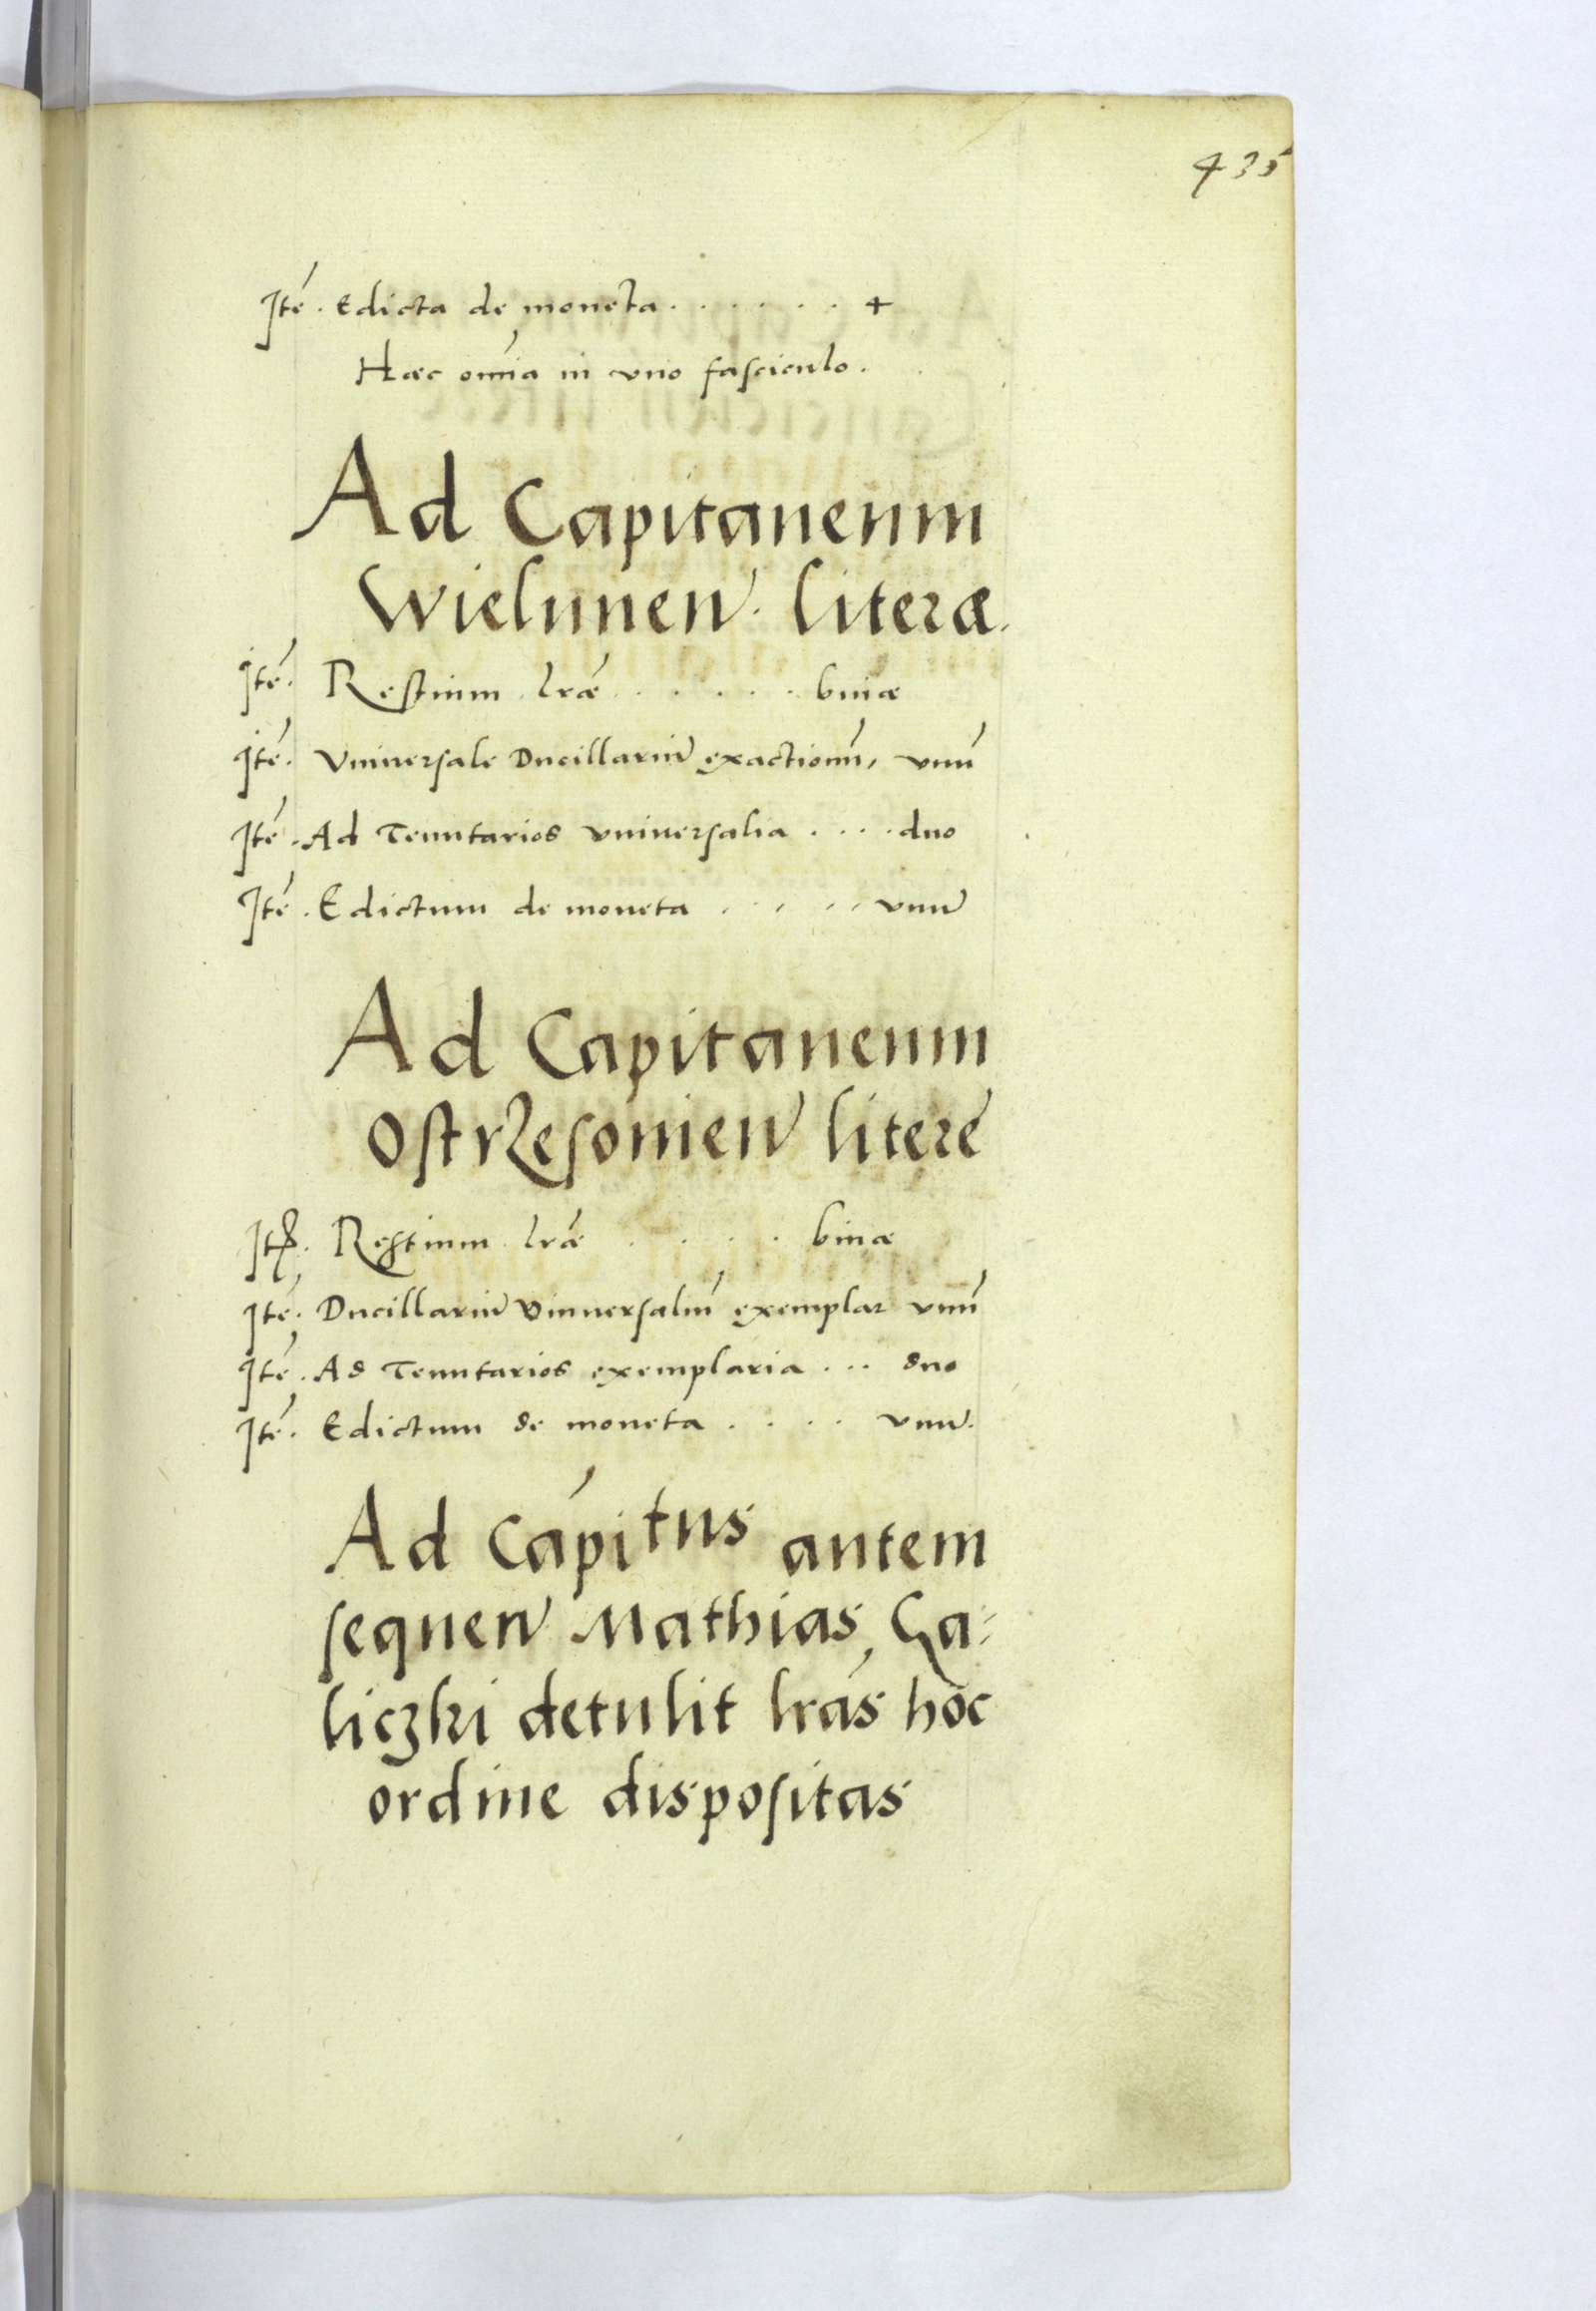 435
Itē. Edicta de moneta . . . . . . . +
Hæc om̄ia in vno fasciculo.
Ad Capitaneum
Wielunen̄. literæ.
Itē. Restium lrǣ . . . . . . binæ
Itē. Vniuersale Ducillariu̅ exactionu̅, vnu̅
Itē. Ad Tenutarios vniuersalia . . . . duo
Itē. Edictum de moneta . . . . . . vnu̅
Ad Capitaneum
Ostrzesonien̄ literē
Itē. Restium lrǣ . . . . binæ
Itē. Ducillariu̅ Vniuersaliu̅ exemplar vnu̅
Itē. Ad Tenutarios exemplaria . . . duo
Itē. Edictum de moneta . . . . vnu̅.
Ad Cāpitus autem
sequen̄ Mathias Ga-
liczki detulit lrās hoc
ordine dispositas